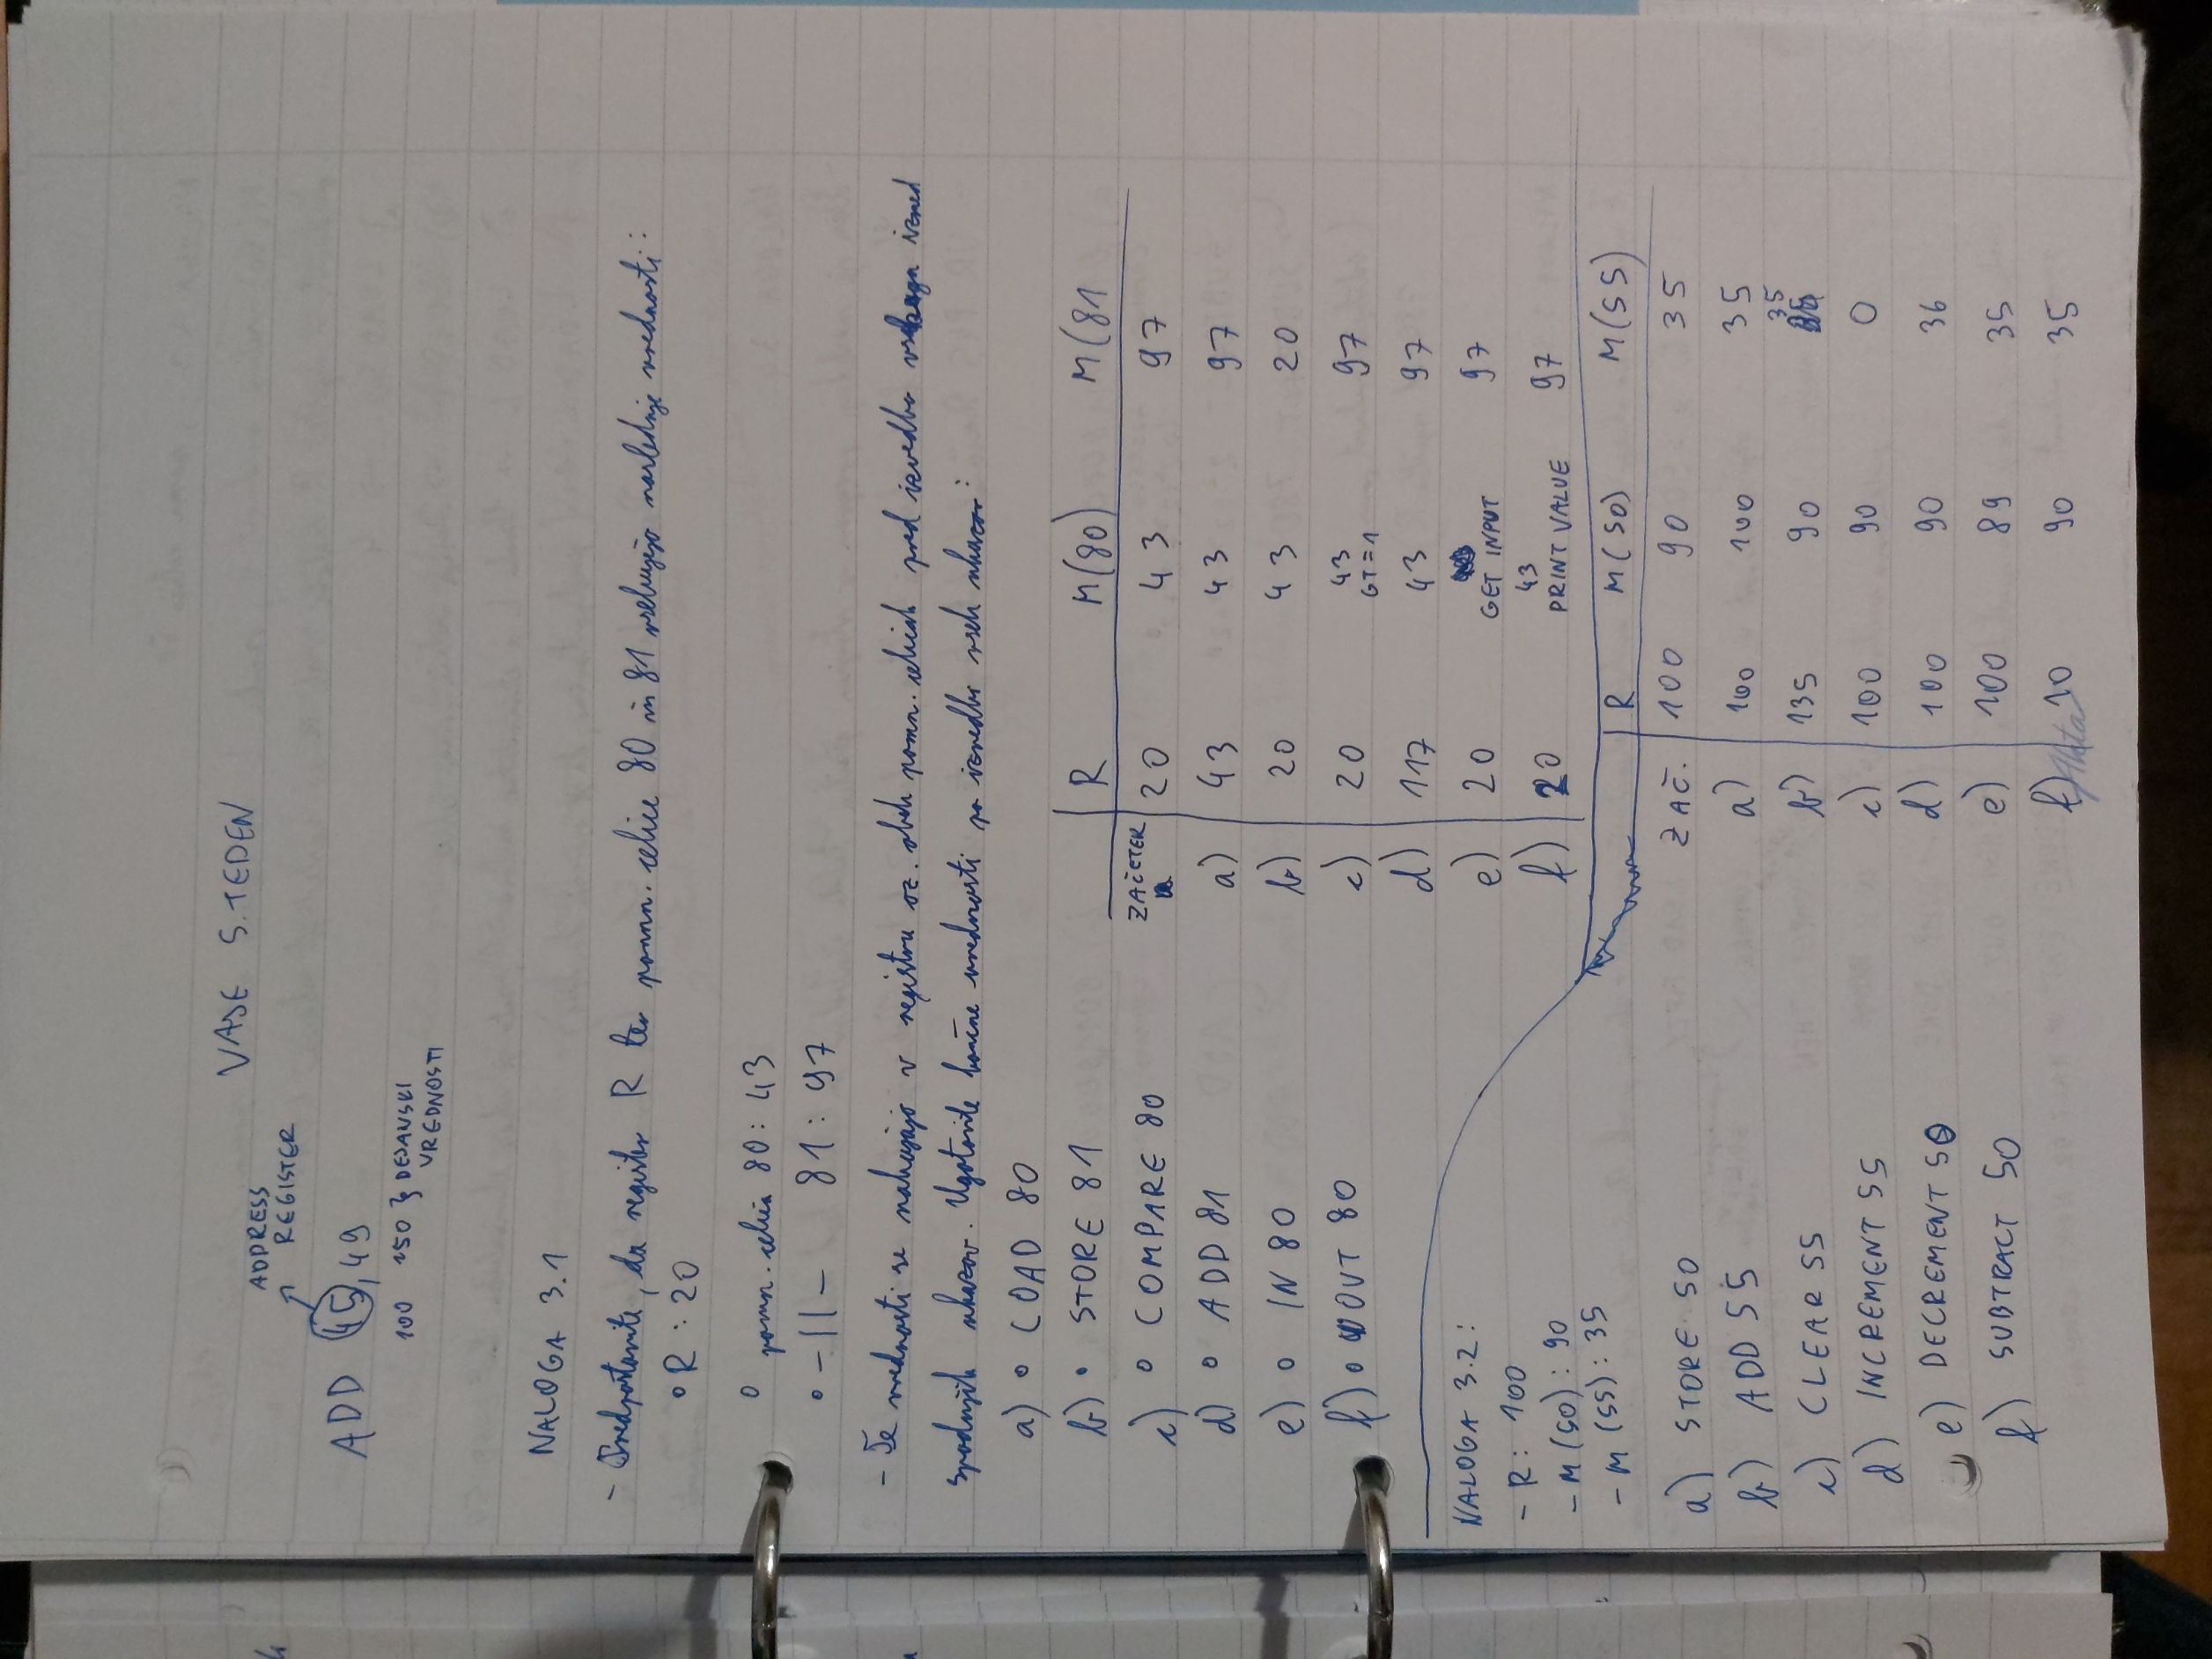 VAJE 5. TEDEN
ADDRESS
REGISTER
ADD 45, 49
100 150 } DEJANSKI
VREDNOSTI
NALOGA 3.1
- Predpostavite, da register R ter pomn. celice 80 in 81 vsebujejo naslednje vrednosti:
• R : 20
• pomn. celica 80: 43
• -||- 81: 97
- Te vrednosti se nahajajo v registru oz. obeh pomn. celicah pred izvedbo vsakega izmed
spodnjih ukazov. Ugotovite končne vrednosti po izvedbi vseh ukazov:
a) • LOAD 80
b) • STORE 81
c) • COMPARE 80
d) • ADD 81
e) • IN 80
f) • OUT 80
R M(80) M(81
ZAČETEK 20 43 97
a) 43 43 97
b) 20 43 20
c) 20 43 97
GT=1
d) 117 43 97
e) 20 GET INPUT 97
f) 20 43 97
PRINT VALUE
NALOGA 3.2:
- R: 100
- M(50): 90
- M(55): 35
a) STORE 50
b) ADD 55
c) CLEAR 55
d) INCREMENT 55
e) DECREMENT 50
f) SUBTRACT 50
R M(50) M(55)
ZAČ. 100 90 35
a) 100 100 35
b) 135 90 35
c) 100 90 0
d) 100 90 36
e) 100 89 35
f) 10 90 35